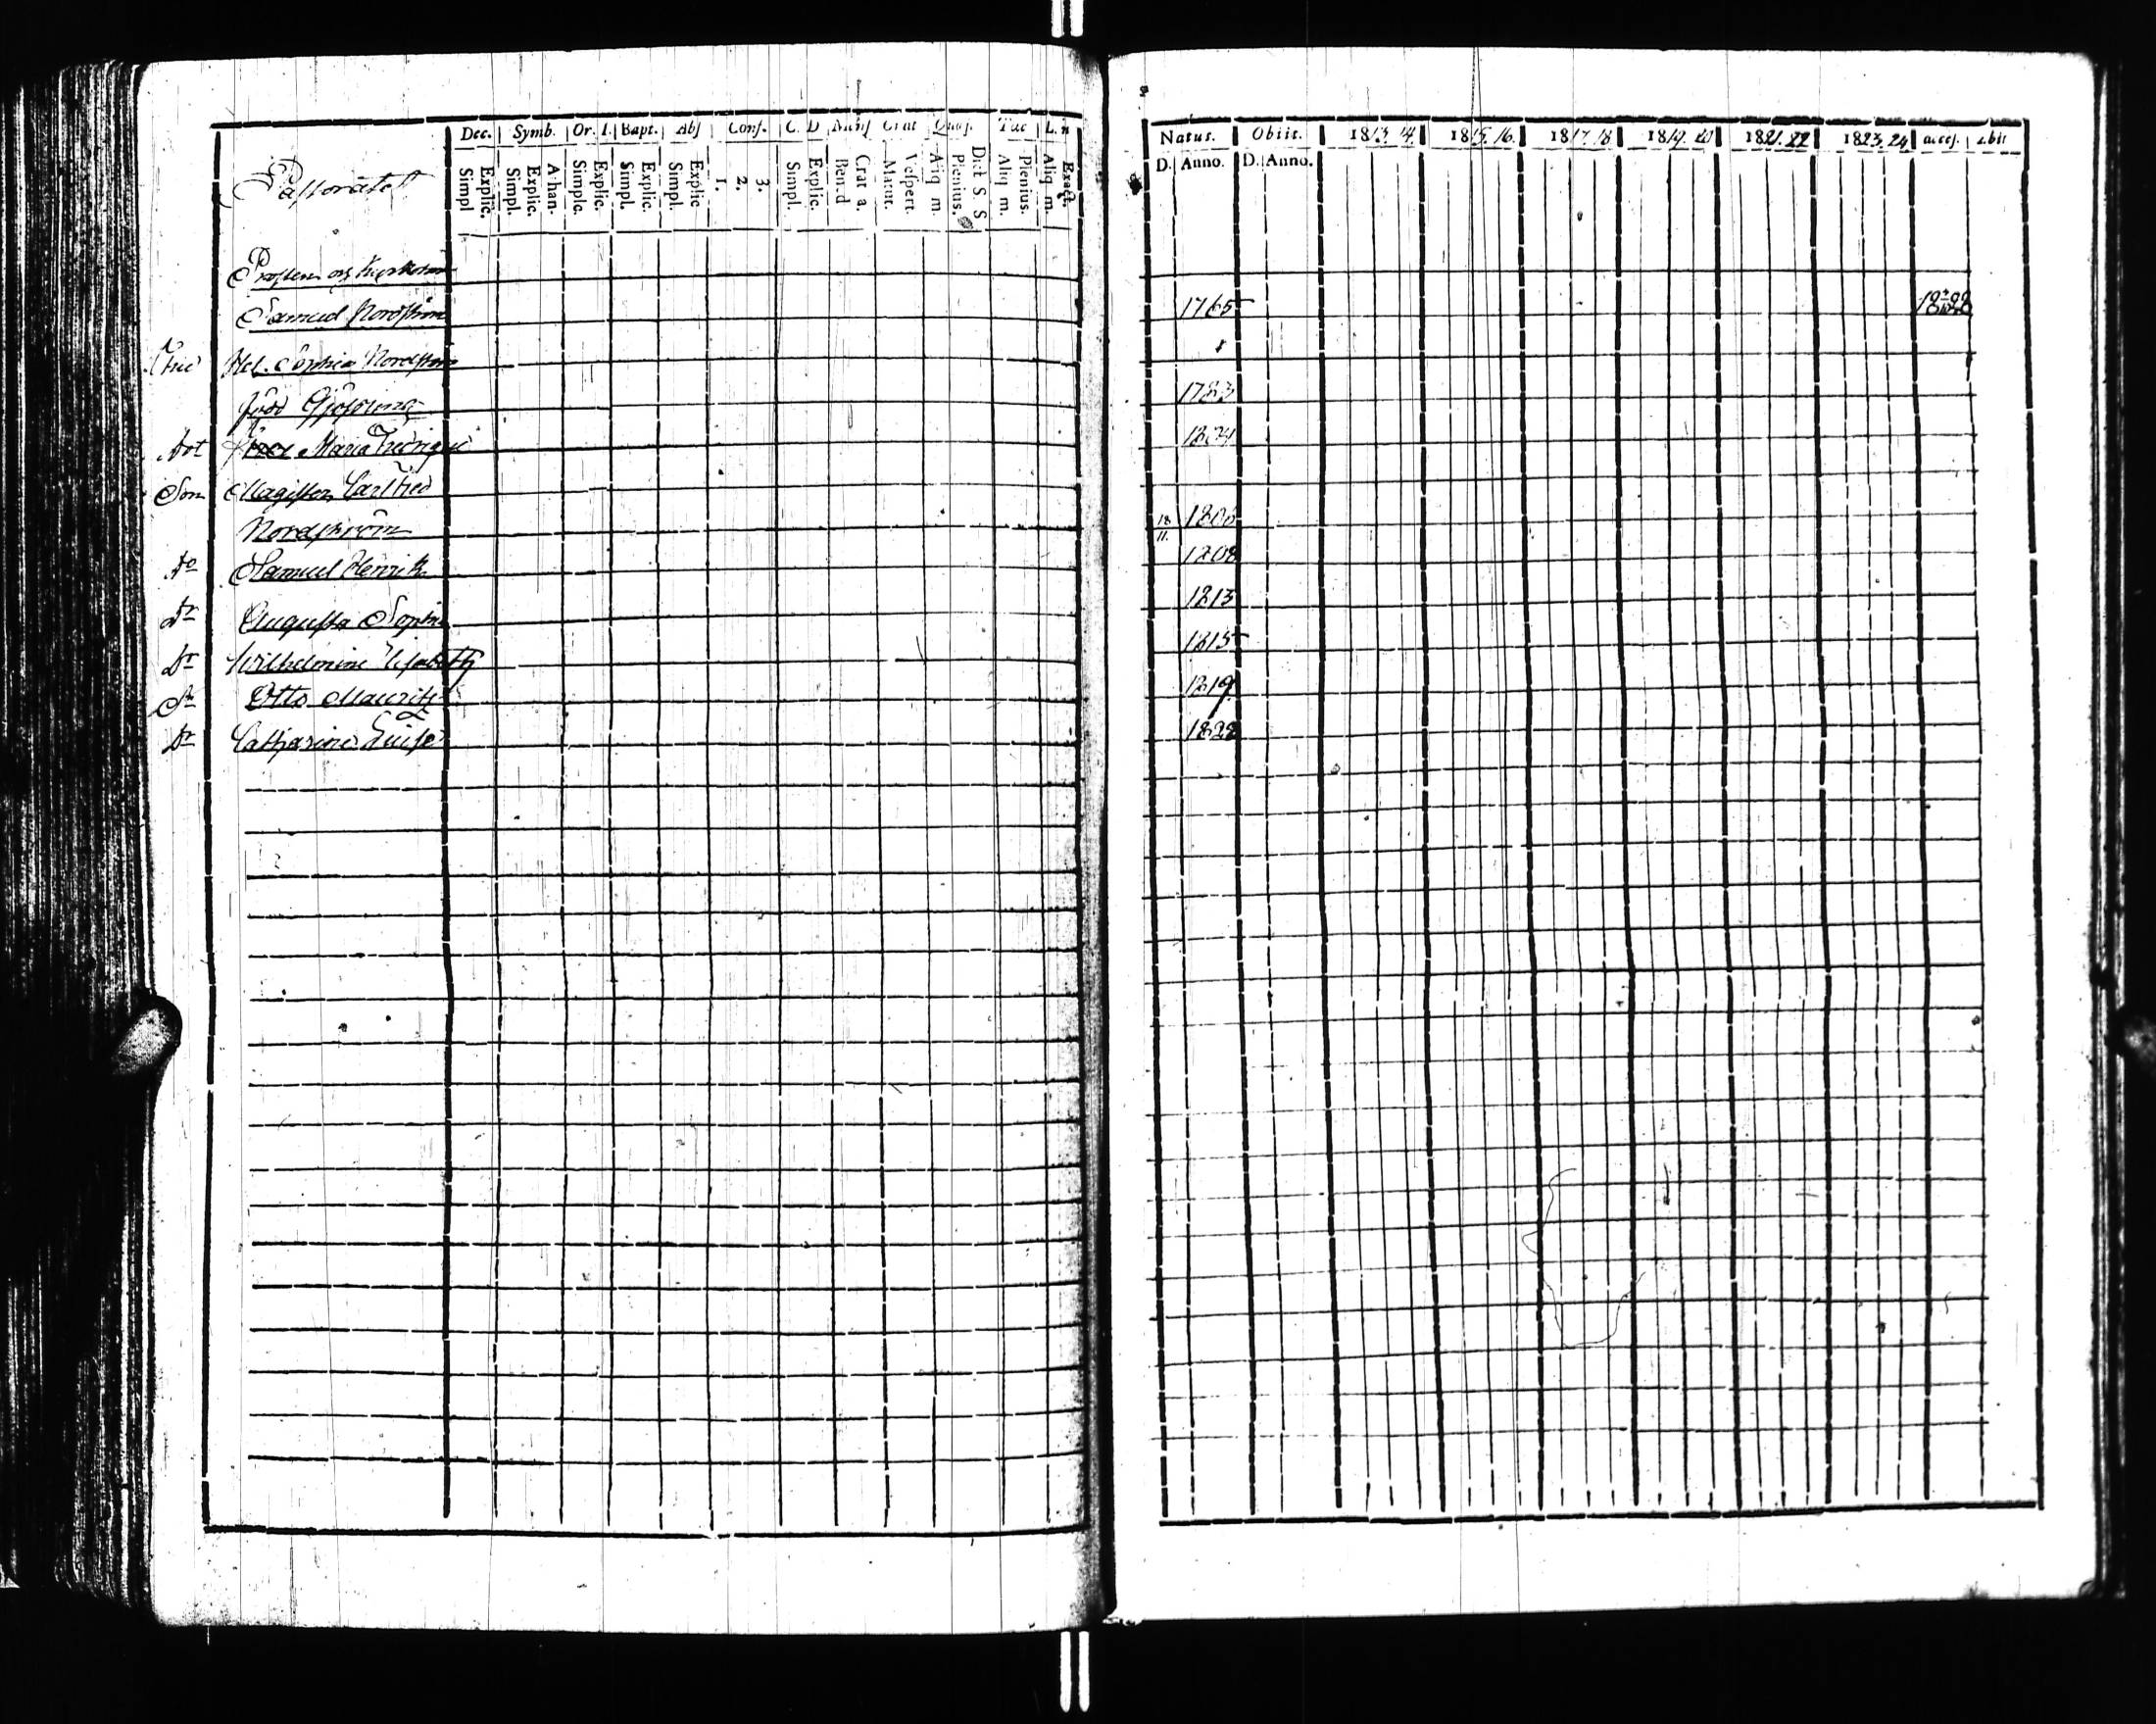 Dec. Symb. Or. I. Bapt. Abs Conf. C. D
Simpl Explic. Simpl. Explic. Athan. Simplc. Explic. Simpl. Explic. Simpl. Explic 1. 2. 3. Simpl. Explic. Vespert. Aliq m. Plenius. Dict S. S Aliq m. Plenius. Aliq m. Exact.
Natus. Obiit. 1813. 14. 1815. 16. 1817. 18 1819. 20 1821. 22 1823. 24 access. abit
D. Anno. D. Anno.
Pastoratet
Prosten och Kyrkoh
Samuel Nordström 1765
Fru Hel. Sophia Nordström
född 1783
Dot Maria 1804
Son Magister Carl Fred
Nordström 18 11. 1806
Do Samuel Henrik 1808
Dr Augusta Sophia 1813
Dr Wilhelmina Elisabeth 1815
Sn Otto Mauritz 1819
Dr Catharina Luise 1822